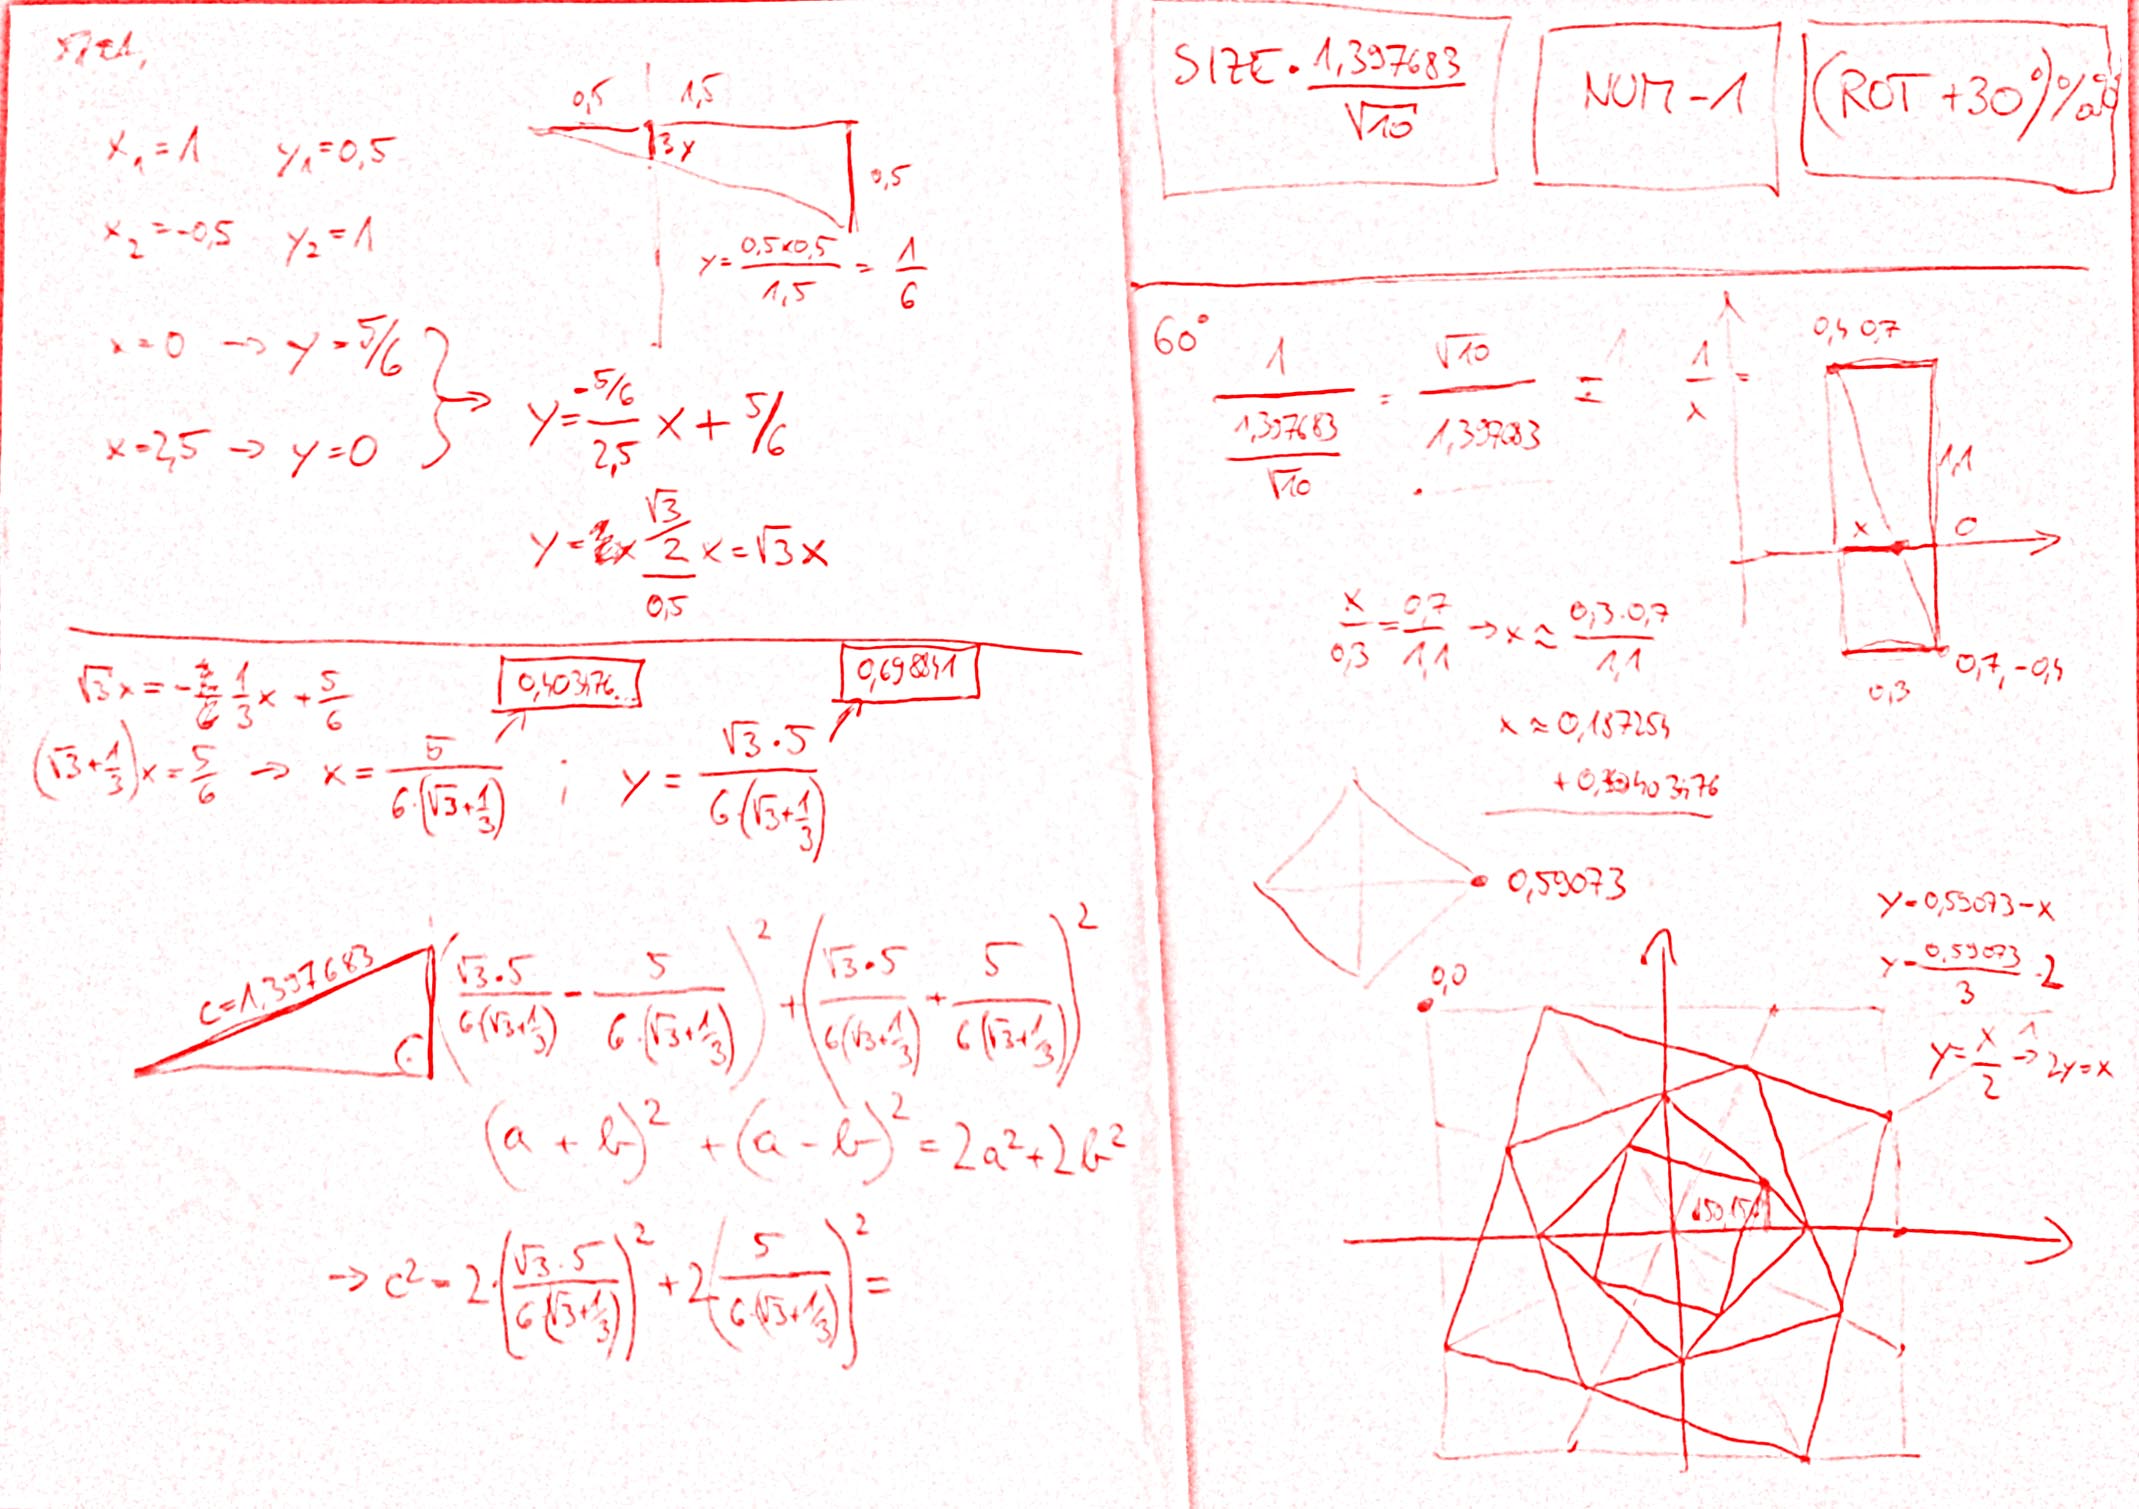 x₁=1 y₁=0,5
x₂=-0,5 y₂=1
0,5 1,5
3y
0,5
y=(0,5×0,5)/1,5 = 1/6
x=0 → y=5/6
x=2,5 → y=0
y=(-5/6)/2,5 x + 5/6
y= x (√3/2)/0,5 x=√3x
√3x=- 1/3 x + 5/6
(√3+1/3)x=5/6 → x=5/(6·(√3+1/3)) ; y=(√3·5)/(6·(√3+1/3))
0,403476...
0,698841
c=1,397683
((√3·5)/(6·(√3+1/3)) - 5/(6·(√3+1/3)))² + ((√3·5)/(6(√3+1/3)) + 5/(6(√3+1/3)))²
(a + b)² + (a - b)² = 2a²+2b²
→ c² = 2·((√3·5)/(6(√3+1/3)))² + 2(5/(6·(√3+1/3)))² =
SIZE · 1,397683/√10
NUM -1
(ROT +30°)%
60°
1/(1,397683/√10) = √10/1,397683 =
1/x =
0,4 0,7
1,1
x 0
0,7,-0,4
0,3
x/0,3=0,7/1,1 → x≈(0,3·0,7)/1,1
x≈0,187254
+ 0,403476
0,59073
y=0,59073-x
y=0,59073/3 ·2
y=x/2 → 2y=x
0,0